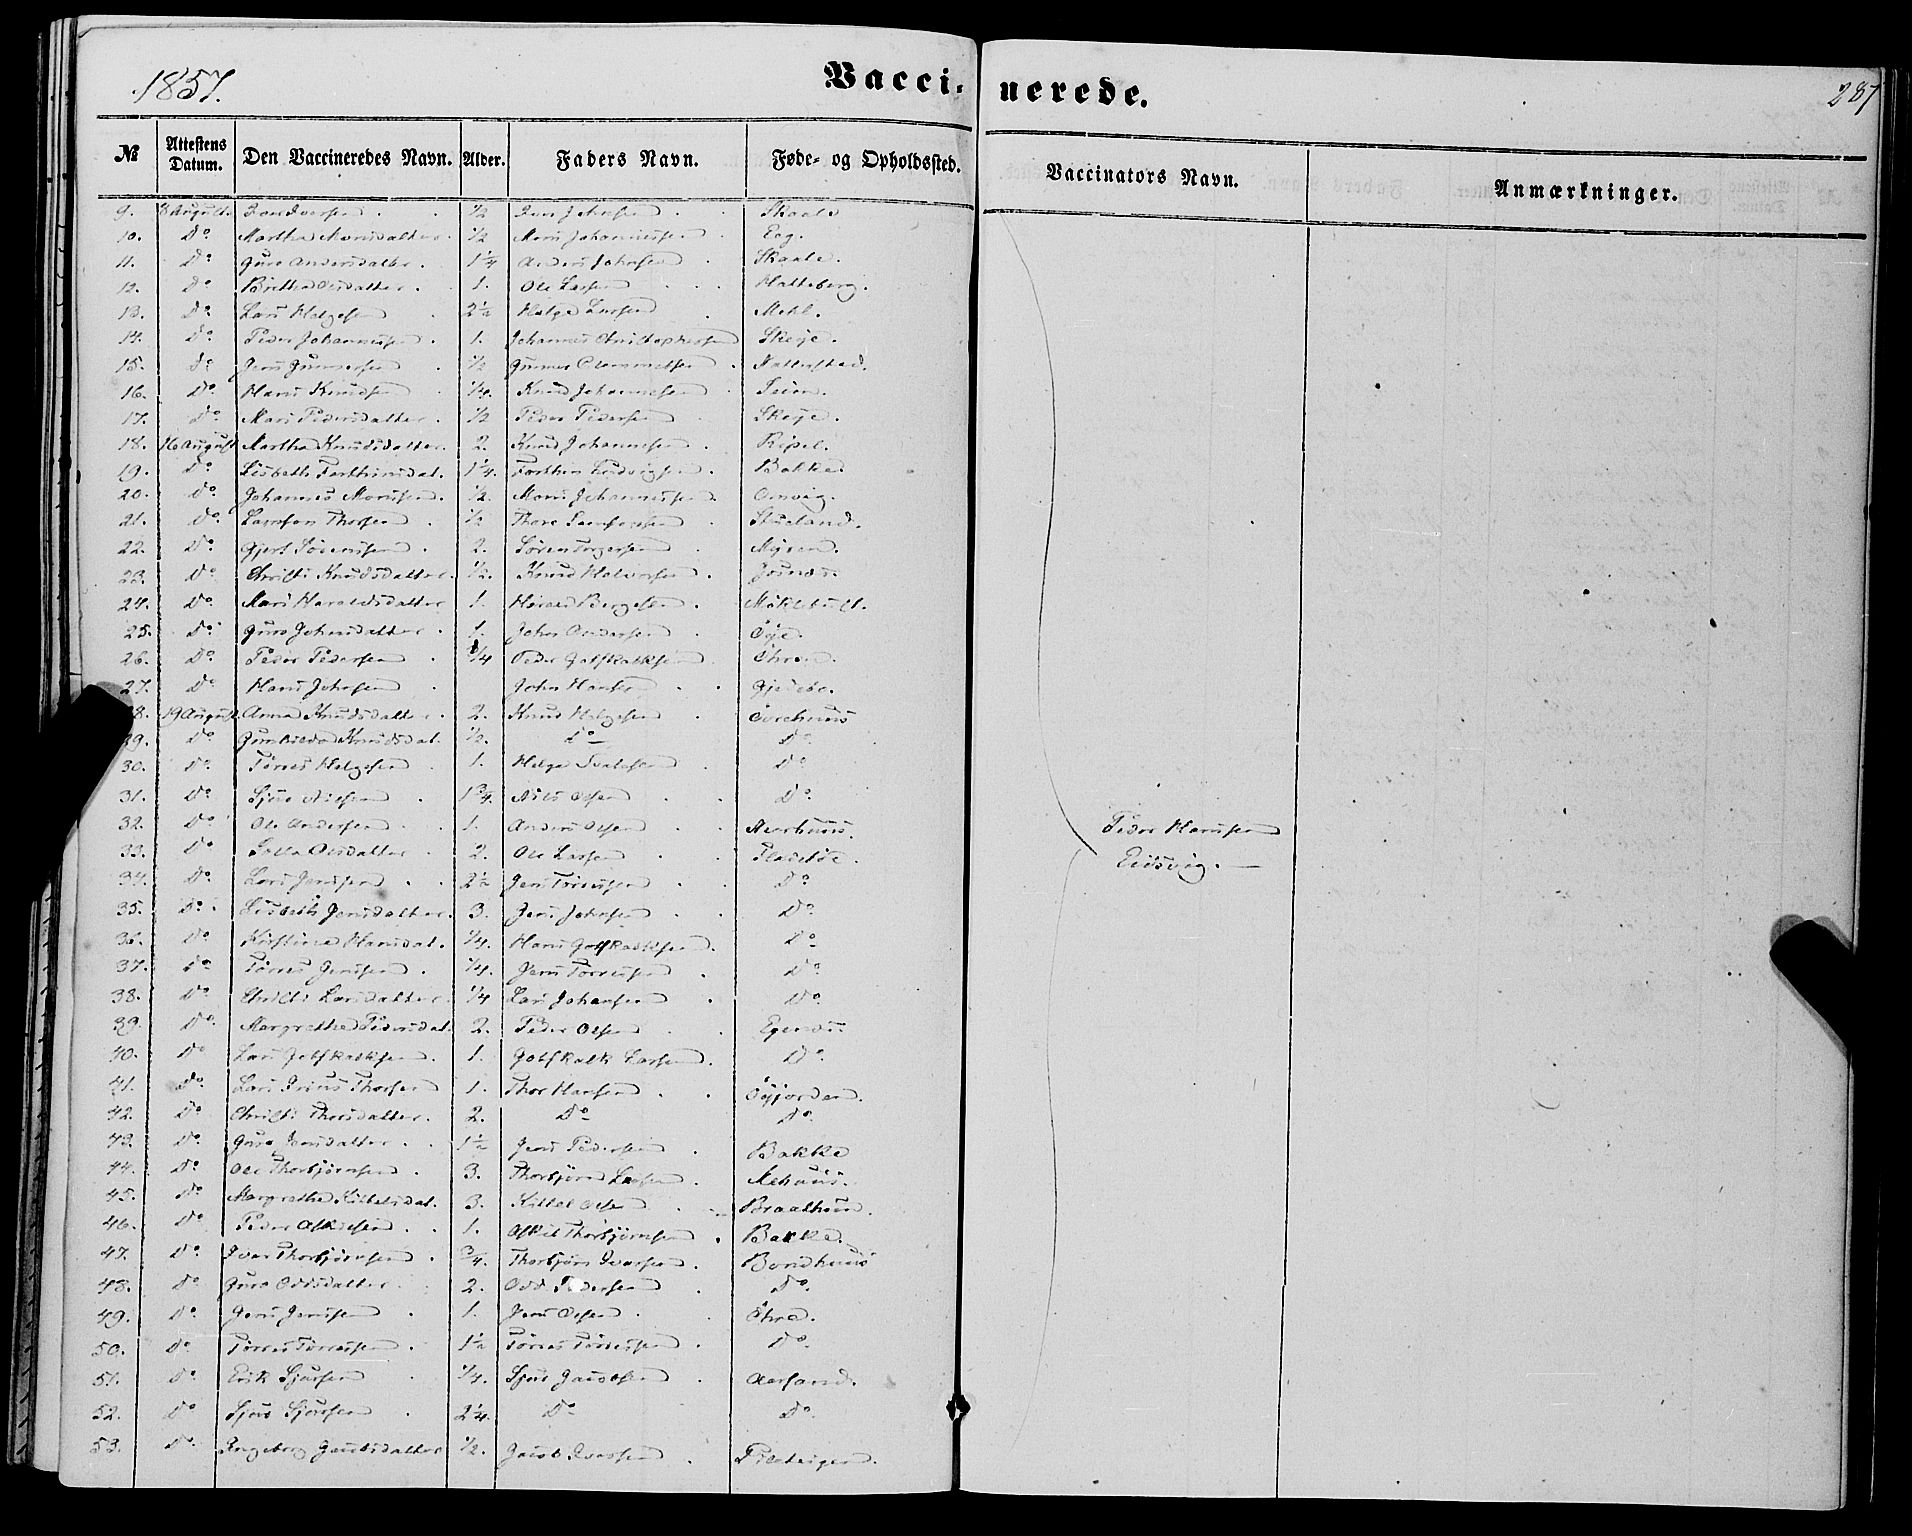 1857.
Vaccinerede.
287
№ Attestens Datum. Den Vaccineredes Navn. Alder. Faders Navn. Føde- og Opholdssted. Vaccinators Navn. Anmærkninger.
9. 8 August Iversen 1/2 Iver Johnsen Skaale
10. Do Martha Monsdatter 1/2 Mons Johannessen Eeg.
11. Do Guro Andersdatter 1 1/4 Anders Johnsen Skaale.
12. Do Britha Olsdatter 1. Ole Larsen Hatteberg.
13. Do Lars Helgesen 2 1/2 Helge Larsen Mehl.
14. Do Peder Johannessen 1. Johannes Christophersen Skeje.
15. Do Jens Gunnersen 1/2 Gunner Clemmetsen Natterstad.
16. Do Hans Knudsen 1/4. Knud Johannesen
17. Do Mari Pedersdatter 1/2 Peder Pedersen Skeje.
18. 16 August Martha Knudsdatter 2. Knud Johannesen Ripel.
19. Do Lisbeth 1 1/4. Bakke
20. Do Johannes Monsen. 1/2. Mons Johannessen Omvig.
21. Do Samson Thorsen 1/2 Thore Samsonsen Stueland.
22. Do Gjert Sørensen 2. Søren Mysen.
23. Do Christi Knudsdatter 1/2. Knud Halvorsen
24. Do Mari Haraldsdatter 1. Harald Børgesen Møklebust.
25. Do Guro Johnsdatter 1. John Andersen Øye.
26. Do Peder Pedersen 1/4 Peder Gotskalksen
27. Do Hans Johnsen John Hansen Gjerdebø.
28. 19 August Anna Knudsdatter 2. Knud Helgesen
29. Do Gunhilda Knudsdat. 1/2. Do Do
30. Do Tørres Helgesen 1. Helge Do
31. Do Sjur Nielsen 1 3/4. Niels Olsen Do
32. Do Ole Andersen 1. Anders Olsen Nærhuus.
33. Do Olsdatter 2. Ole Larsen Fladebøe.
34. Do Lars Jensen 2 1/2 Jens Tørressen Do
35. Do Lisbeth Jensdatter. 3. Jens Johnsen Do
36. Do Kirstine Hansdat. 1/4. Hans Gotskalksen. Do
37. Do Tørres Jensen 1/4. Jens Tørressen Do
38. Do Christi Larsdatter 1/4 Lars Johansen Do
39. Do Margrethe Pedersdat. 2. Peder Olsen Egenæs.
40. Do Lars Gotskalksen. 1. Gotskalk Larsen. Do
41. Do Lars Thorsen 1. Thor Hansen Øyjorden.
42. Do Christi Thorsdatter. 2. Do Do
43. Do Guro Jensdatter 1 1/2 Jens Pedersen Bakke
44. Do Ole Thorbjørnsen 3. Thorbjørn Larsen Nehuus.
45. Do Margrethe Kittelsdat. 3. Kittel Olsen Braathun.
46. Do Peder Askilsen 1. Askil Thorbjørnsen Bakke.
47. Do Iver Thorbjørnsen 3/4. Thorbjørn Iversen Bondhuus
48. Do Guro Oddsdatter 2. Odd Pedersen Do
49. Do Jens Jensen 1. Jens Olsen Øhre.
50. Do Tørres Tørressen 1 1/2 Tørres Tørressen Do
51. Do Erik Sjursen 1/4. Sjur Jacobsen Aarsand.
52. Do Sjur Sjursen 2 1/4. Do Do
53. Do Ingeborg 1/2. Iversen
Peder Hansen
Eidsvig.